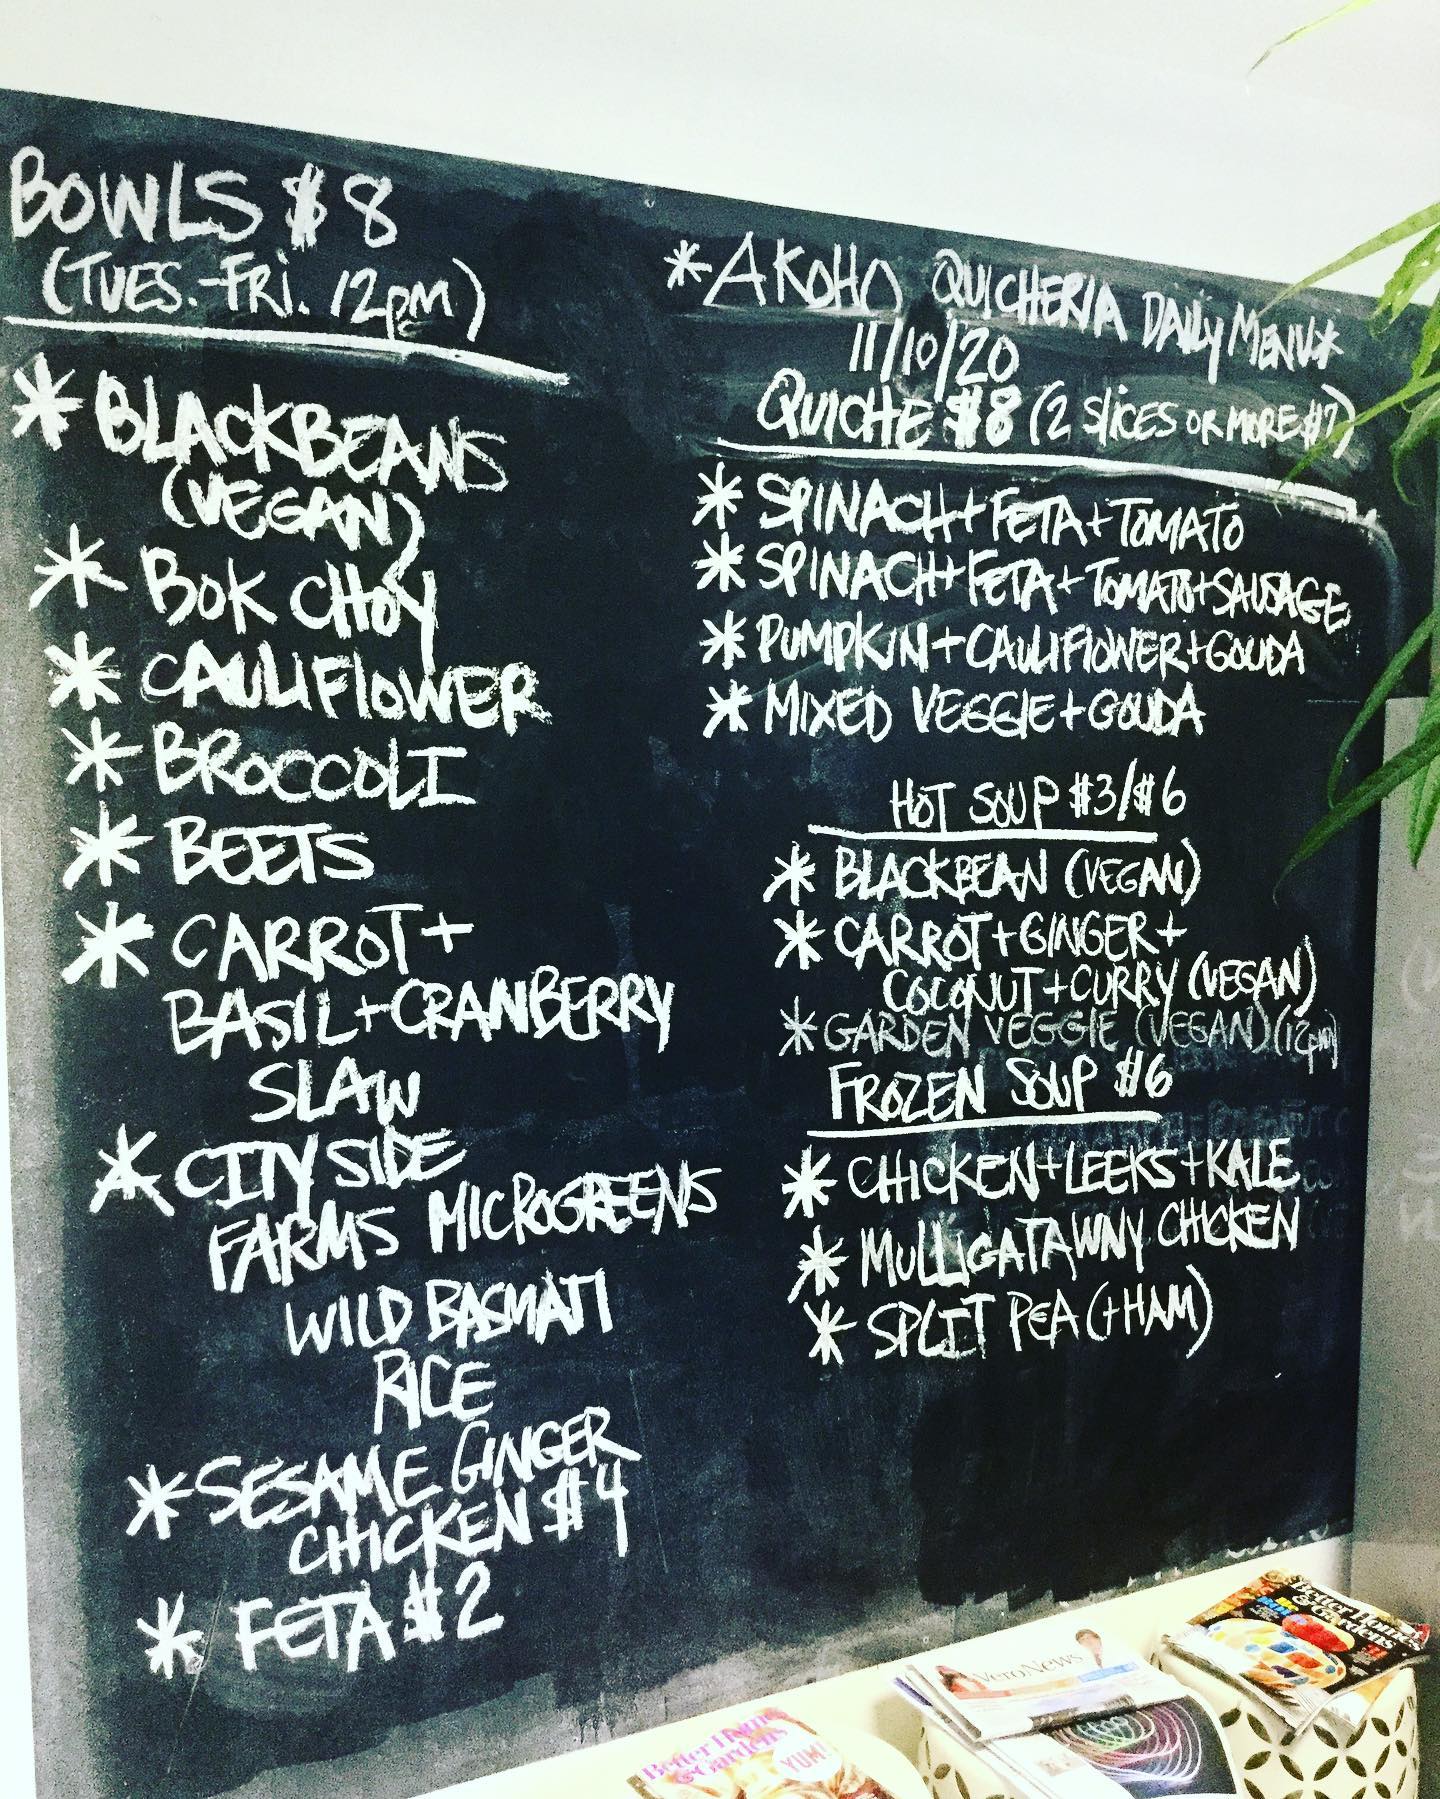 BOWLS $8
(TUES.-FRI. 12PM)
* BLACKBEANS
(VEGAN)
* BOK CHOY
* CAULIFLOWER
* BROCCOLI
* BEETS
* CARROT+
BASIL+CRANBERRY
SLAW
* CITYSIDE
FARMS MICROGREENS
WILD BASMATI
RICE
* SESAME GINGER
CHICKEN $4
* FETA $2
*AKOHO QUICHERIA DAILY MENU*
11/10/20
QUICHE $8 (2 SLICES OR MORE $7)
* SPINACH+FETA+TOMATO
* SPINACH+FETA+TOMATO+SAUSAGE
* PUMPKIN+CAULIFLOWER+GOUDA
* MIXED VEGGIE+GOUDA
HOT SOUP $3/$6
* BLACKBEAN (VEGAN)
* CARROT+GINGER+
COCONUT+CURRY (VEGAN)
* GARDEN VEGGIE (VEGAN) (12pm)
FROZEN SOUP $6
* CHICKEN+LEEKS+KALE
* MULLIGATAWNY CHICKEN
* SPLIT PEA (+HAM)
Better Homes
& Gardens
VeroNews
Better Homes
& Gardens
YUM!